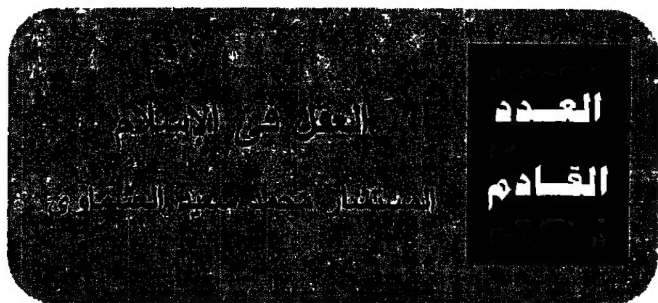 العدد
القادم
العقل فى الإسلام
المستشار محمد سعيد العشماوى